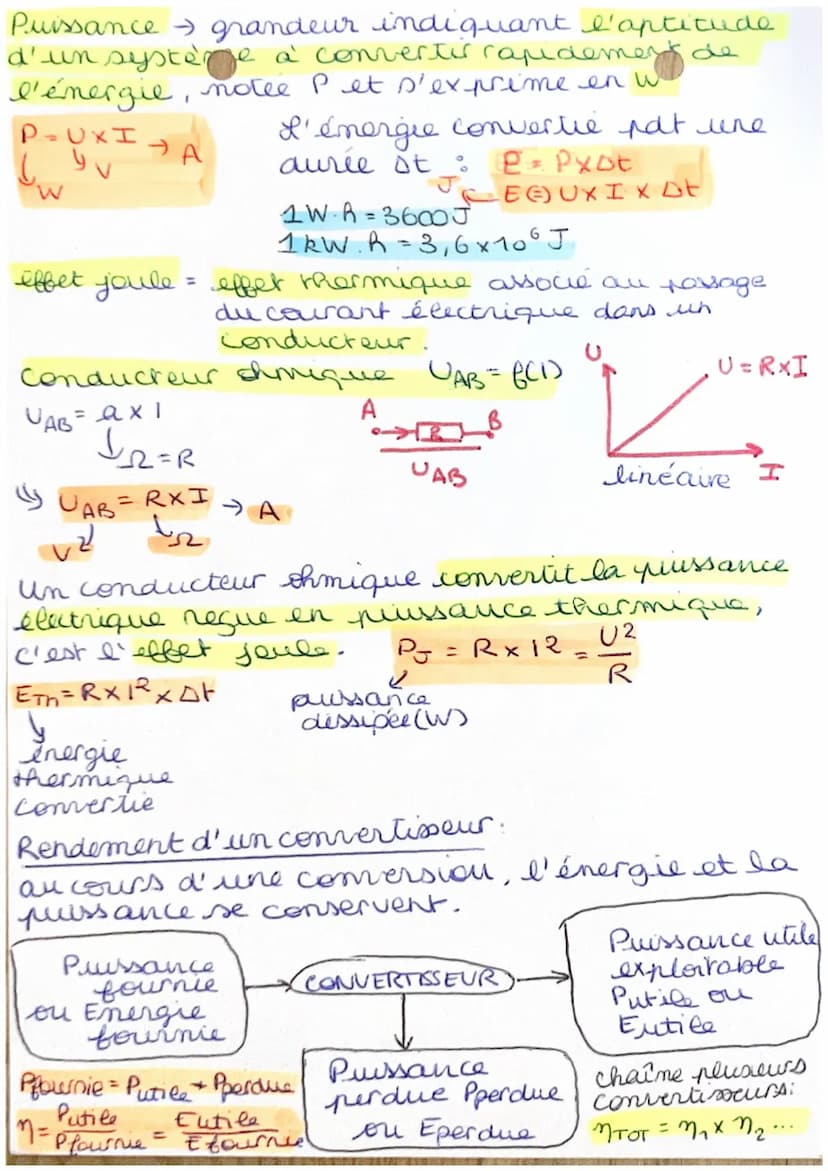 Puissance → grandeur indiquant l'aptitude
d'un système à convertir rapidement de
l'énergie, notée P et s'exprime en W
P = U × I → A
W
V
L'énergie convertie pdt une
durée Δt : E = P × Δt
J E (=) U × I × Δt
1 W.h = 3600 J
1 kW.h = 3,6 × 10⁶ J
effet joule = effet thermique associé au passage
du courant électrique dans un
conducteur.
conducteur ohmique U_AB = f(I)
U
U = R×I
linéaire I
U_AB = a × I
Ω = R
A B
R
U_AB
↳ U_AB = R × I → A
V Ω
Un conducteur ohmique convertit la puissance
électrique reçue en puissance thermique,
c'est l'effet joule. P_J = R × I² = U²/R
puissance
dissipée (W)
E_Th = R × I² × Δt
énergie
thermique
convertie
Rendement d'un convertisseur :
au cours d'une conversion, l'énergie et la
puissance se conservent.
Puissance
fournie
ou Energie
fournie
CONVERTISSEUR
Puissance utile
exploitable
Putile ou
Eutile
Puissance
perdue Pperdue
ou Eperdue
Pfournie = Putile + Pperdue
η = Putile/Pfournie = Eutile/Efournie
chaîne plusieurs
convertisseurs :
η_TOT = η₁ × η₂ ...